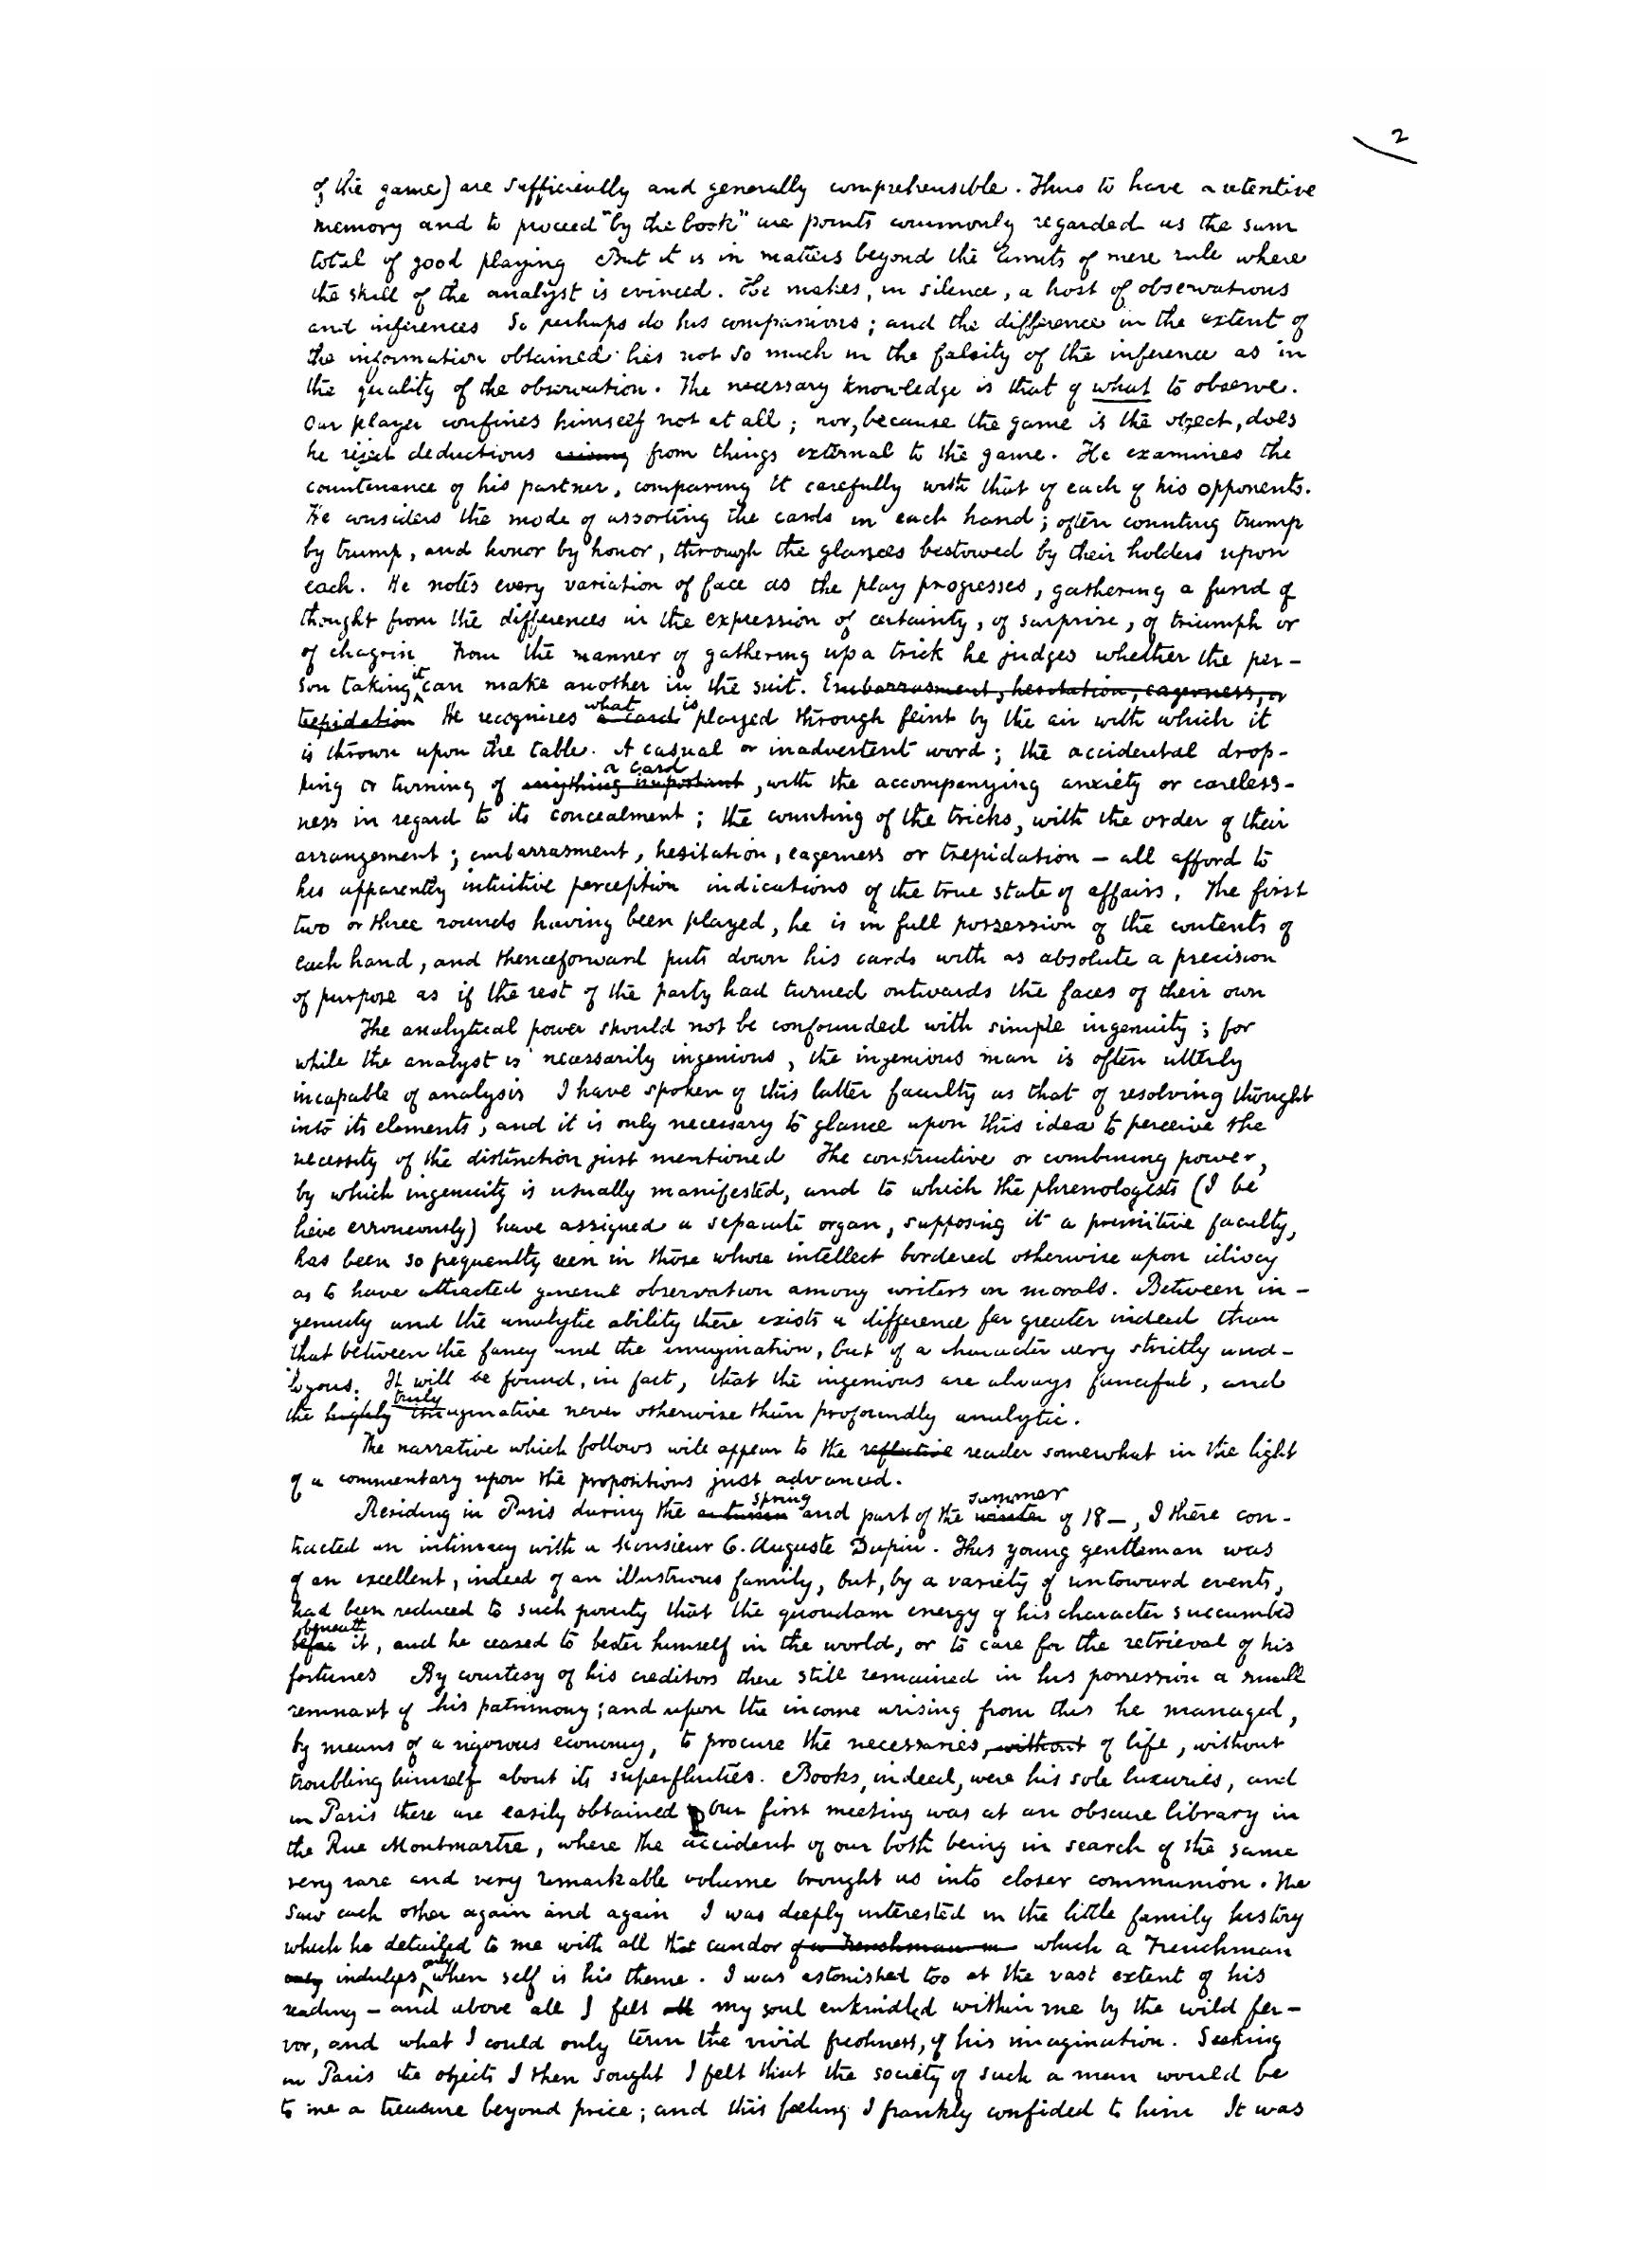 2
of the game) are sufficiently and generally comprehensible. Thus to have a retentive
memory and to proceed "by the book" are points commonly regarded as the sum
total of good playing But it is in matters beyond the limits of mere rule where
the skill of the analyst is evinced. He makes, in silence, a host of observations
and inferences So perhaps do his companions; and the difference in the extent of
the information obtained lies not so much in the falsity of the inference as in
the quality of the observation. The necessary knowledge is that of what to observe.
Our player confines himself not at all; nor, because the game is the object, does
he reject deductions arising from things external to the game. He examines the
countenance of his partner, comparing it carefully with that of each of his opponents.
He considers the mode of assorting the cards in each hand; often counting trump
by trump, and honor by honor, through the glances bestowed by their holders upon
each. He notes every variation of face as the play progresses, gathering a fund of
thought from the differences in the expression of certainty, of surprise, of triumph or
of chagrin From the manner of gathering up a trick he judges whether the per-
son taking it can make another in the suit. Embarrasment, hesitation, eagerness, or
trepidation He recognises what a card is played through feint by the air with which it
is thrown upon the table. A casual or inadvertent word; the accidental drop-
ping or turning of a card anything important, with the accompanying anxiety or careless-
ness in regard to its concealment; the counting of the tricks, with the order of their
arrangement; embarrasment, hesitation, eagerness or trepidation – all afford to
his apparently intuitive perception indications of the true state of affairs. The first
two or three rounds having been played, he is in full possession of the contents of
each hand, and thenceforward puts down his cards with as absolute a precision
of purpose as if the rest of the party had turned outwards the faces of their own
The analytical power should not be confounded with simple ingenuity; for
while the analyst is necessarily ingenious, the ingenious man is often utterly
incapable of analysis I have spoken of this latter faculty as that of resolving thought
into its elements, and it is only necessary to glance upon this idea to perceive the
necessity of the distinction just mentioned The constructive or combining power,
by which ingenuity is usually manifested, and to which the phrenologists (I be
lieve erroneously) have assigned a separate organ, supposing it a primitive faculty,
has been so frequently seen in those whose intellect bordered otherwise upon idiocy
as to have attracted general observation among writers on morals. Between in-
genuity and the analytic ability there exists a difference far greater indeed than
that between the fancy and the imagination, but of a character very strictly ana-
logous. It will be found, in fact, that the ingenious are always fanciful, and
the highly truly imaginative never otherwise than profoundly analytic.
The narrative which follows will appear to the reflective reader somewhat in the light
of a commentary upon the propositions just advanced.
Residing in Paris during the autumn spring and part of the winter summer of 18–, I there con-
tracted an intimacy with a Monsieur C. Auguste Dupin. This young gentleman was
of an excellent, indeed of an illustrious family, but, by a variety of untoward events,
had been reduced to such poverty that the quondam energy of his character succumbed
before beneath it, and he ceased to bester himself in the world, or to care for the retrieval of his
fortunes By courtesy of his creditors there still remained in his possession a small
remnant of his patrimony; and upon the income arising from this he managed,
by means of a rigorous economy, to procure the necessaries, without of life, without
troubling himself about its superfluities. Books, indeed, were his sole luxuries, and
in Paris these are easily obtained Our first meeting was at an obscure library in
the Rue Montmartre, where the accident of our both being in search of the same
very rare and very remarkable volume brought us into closer communion. We
saw each other again and again I was deeply interested in the little family history
which he detailed to me with all that candor of a Frenchman which a Frenchman
only indulges only when self is his theme. I was astonished too at the vast extent of his
reading – and above all I felt all my soul enkindled within me by the wild fer-
vor, and what I could only term the vivid freshness, of his imagination. Seeking
in Paris the objects I then sought I felt that the society of such a man would be
to me a treasure beyond price; and this feeling I frankly confided to him It was